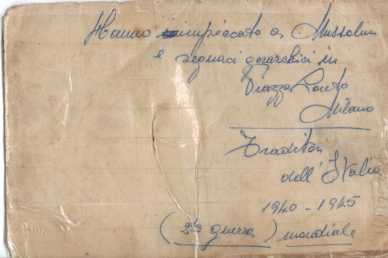 Hanno impiccato a Mussolini
e seguaci gerarchici in
Piazza Loreto
Milano
Traditori
dell'Italia
1940-1945
(2da guerra) mondiale